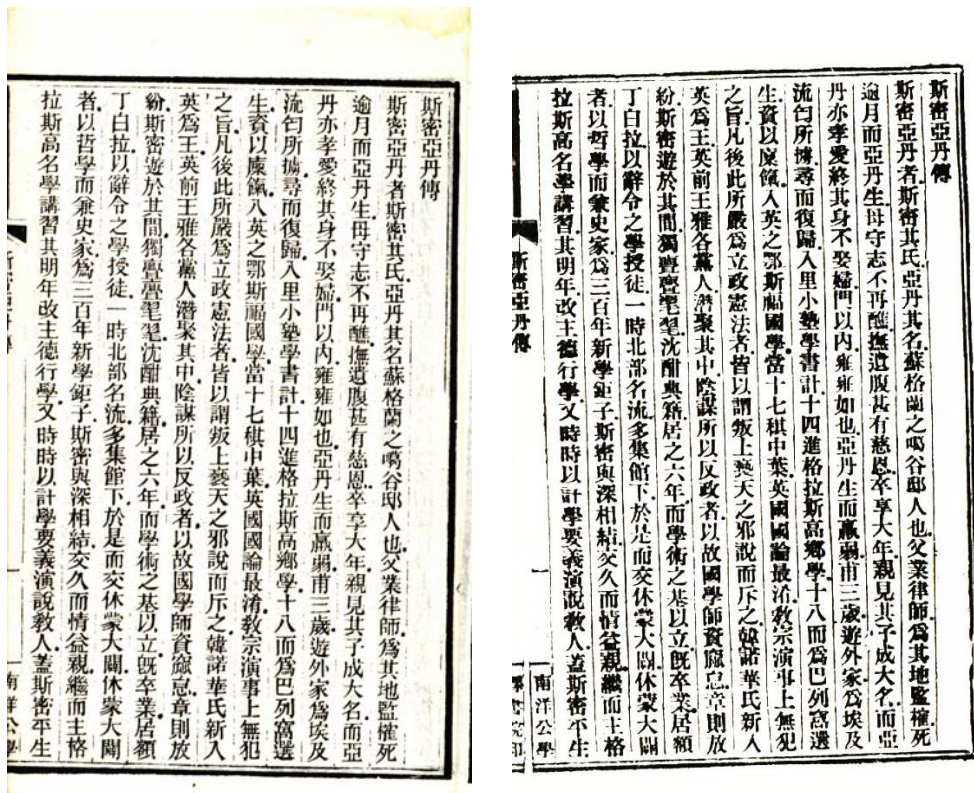 斯密亞丹傳
斯密亞丹者斯密其氏亞丹其名蘇格蘭之噶谷邸人也父業律師爲其地監榷死
逾月而亞丹生母守志不再醮撫遺腹甚有慈恩卒享大年親見其子成大名而亞
丹亦孝愛終其身不娶婦門以內雍雍如也亞丹生而羸弱甫三歲遊外家爲埃及
流匄所攎尋而復歸入里小塾學書計十四進格拉斯高鄉學十八而爲巴列窩選
生資以廩餼入英之鄂斯福國學當十七棋中葉英國國論最淆教宗演事上無犯
之旨凡後此所嚴爲立政憲法者皆以謂叛上褻天之邪說而斥之韓諾華氏新入
英爲王英前王雅各黨人潛聚其中陰謀所以反政者以故國學師資窳怠章則放
紛斯密遊於其間獨亹亹毣毣沈酣典籍居之六年而學術之基以立旣卒業居額
丁白拉以辭令之學授徒一時北部名流多集館下於是而交休蒙大闢休蒙大闢
者以哲學而兼史家爲三百年新學鉅子斯密與深相結交久而情益親繼而主格
拉斯高名學講習其明年改主德行學又時時以計學要義演說教人蓋斯密平生
一
南洋公學
斯密亞丹傳
斯密亞丹者斯密其氏亞丹其名蘇格蘭之噶谷邸人也父業律師爲其地監榷死
逾月而亞丹生母守志不再醮撫遺腹甚有慈恩卒享大年親見其子成大名而亞
丹亦孝愛終其身不娶婦門以內雍雍如也亞丹生而羸弱甫三歲遊外家爲埃及
流匄所攎尋而復歸入里小塾學書計十四進格拉斯高鄉學十八而爲巴列窩選
生資以廩餼入英之鄂斯福國學當十七棋中葉英國國論最淆教宗演事上無犯
之旨凡後此所嚴爲立政憲法者皆以謂叛上褻天之邪說而斥之韓諾華氏新入
英爲王英前王雅各黨人潛聚其中陰謀所以反政者以故國學師資窳怠章則放
紛斯密遊於其間獨亹亹毣毣沈酣典籍居之六年而學術之基以立旣卒業居額
丁白拉以辭令之學授徒一時北部名流多集館下於是而交休蒙大闢休蒙大闢
者以哲學而兼史家爲三百年新學鉅子斯密與深相結交久而情益親繼而主格
拉斯高名學講習其明年改主德行學又時時以計學要義演說教人蓋斯密平生
斯密亞丹傳
一
南洋公學
譯書院印